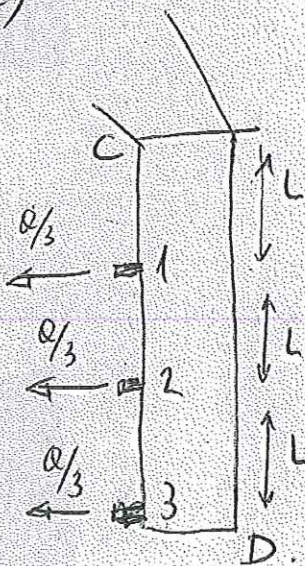 )
C
L
Q/3
1
Q/3
2
L
Q/3
3
L
D.